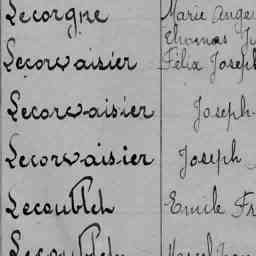 Lecorgne Marie Ange
Thomas
Lecorvaisier Félix Joseph
Lecorvaisier Joseph
Lecorvaisier Joseph
Lecoubleh Emile Fr